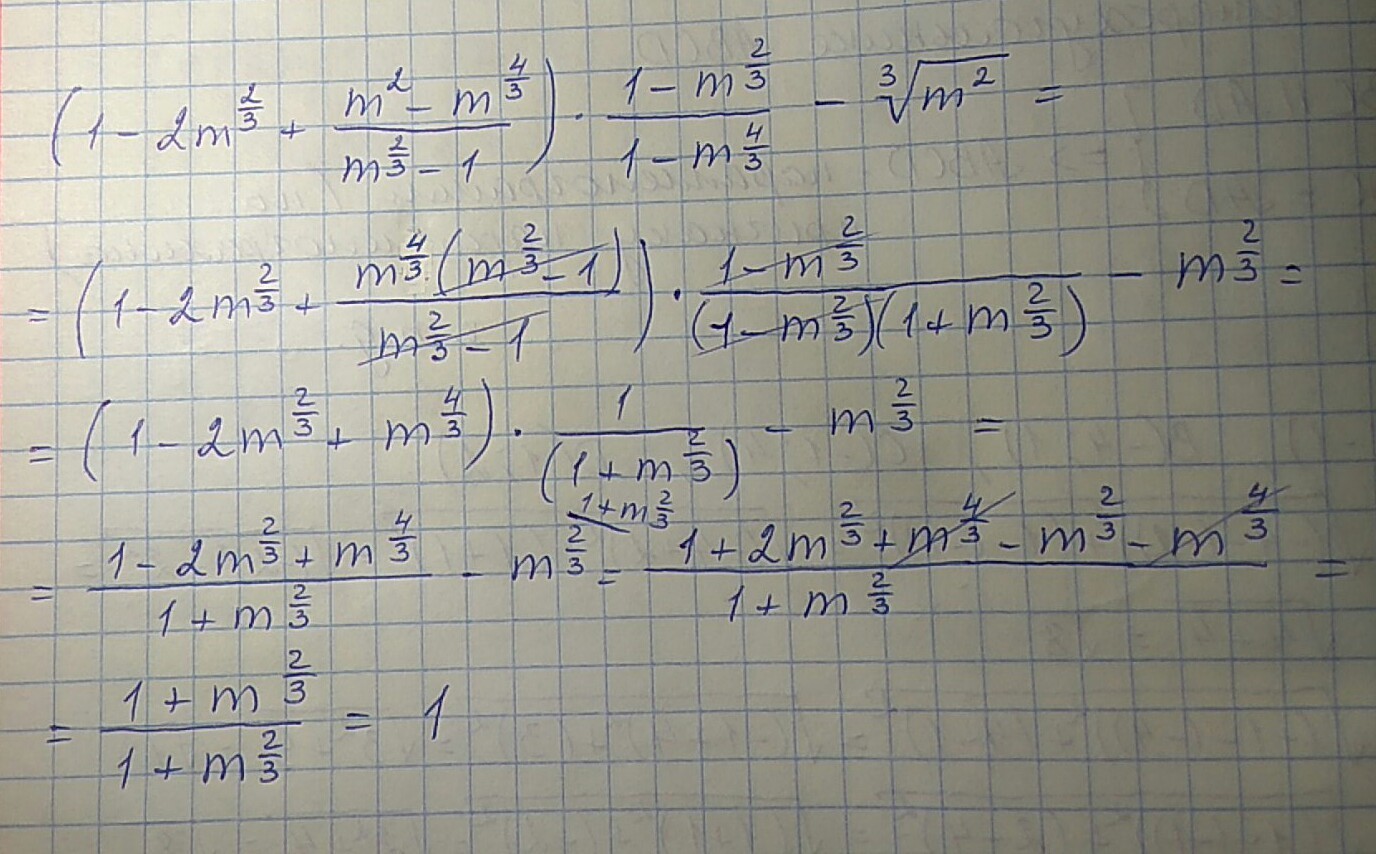 (1 - 2m^{2/3} + \frac{m^2 - m^{4/3}}{m^{2/3} - 1}) · \frac{1 - m^{2/3}}{1 - m^{4/3}} - \sqrt[3]{m^2} =
= (1 - 2m^{2/3} + \frac{m^{4/3}·(m^{2/3} - 1)}{m^{2/3} - 1}) · \frac{1 - m^{2/3}}{(1 - m^{2/3})(1 + m^{2/3})} - m^{2/3} =
= (1 - 2m^{2/3} + m^{4/3}) · \frac{1}{(1 + m^{2/3})} - m^{2/3} =
= \frac{1 - 2m^{2/3} + m^{4/3}}{1 + m^{2/3}} - m^{2/3} ^{1 + m^{2/3}} = \frac{1 + 2m^{2/3} + m^{4/3} - m^{2/3} - m^{4/3}}{1 + m^{2/3}} =
= \frac{1 + m^{2/3}}{1 + m^{2/3}} = 1